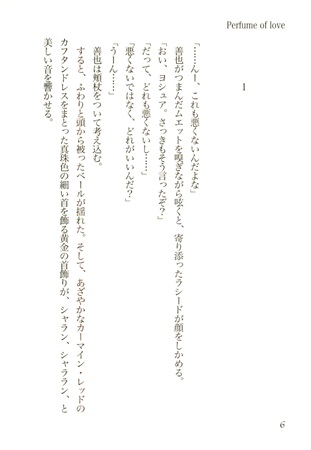 Perfume of love
I
「……んー、これも悪くないんだよな」
善也がつまんだムエットを嗅ぎながら呟くと、寄り添ったラシードが顔をしかめる。
「おい、ヨシュア。さっきもそう言ったぞ?」
「だって、どれも悪くないし……」
「悪くないではなく、どれがいいんだ?」
「うーん……」
善也は頬杖をついて考え込む。
すると、ふわりと頭から被ったベールが揺れた。そして、あざやかなカーマイン・レッドの
カフタンドレスをまとった真珠色の細い首を飾る黄金の首飾りが、シャラン、シャララン、と
美しい音を響かせる。
6